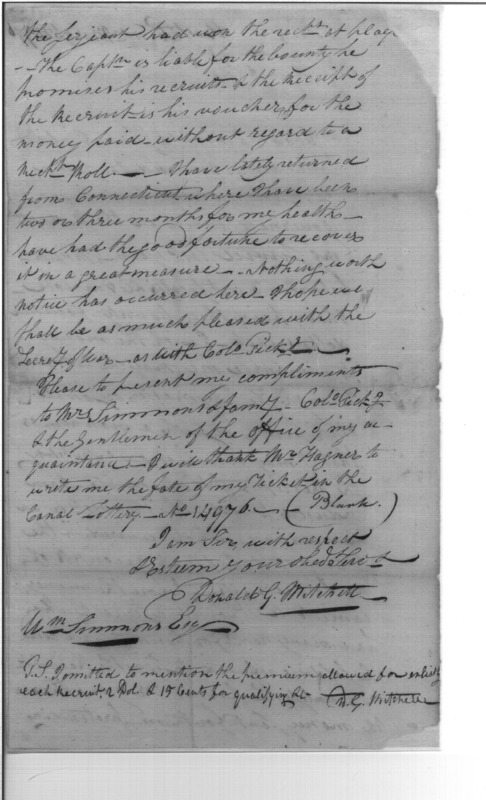 the Serjeant had won the rects. at play
-- The Captn. is liable for the bounty he
promises his recruits - & the Receipt of
the Recruit is his voucher for the
money paid - without regard to a
Roll. -- I have lately returned
from Connecticut where I have been
two or three months for my health -
have had the good fortune to recover
it in a great measure - Nothing worth
notice has occurred here - I hope we
shall be as much pleased with the
Secrey. of War - as with Colo. Pickg. -
Please to present my compliments
to Mrs Simmons & famy. - Colo. Pickg.
& the Gentlemen of the office of my ac-
quaintance - I will thank Mr. Hagner to
write me the fate of my Ticket in the
Canal Lottery - No. 14976 - (Blank.)
I am Sir, with respect
& Esteem your obedt. Servt
Donald G. Mitchell
Wm Simmons Esq
P.S. I omitted to mention the premium allowed for enlistg
each Recruit. 2 Dol. & 15 Cents for qualifying &c D. G. Mitchell